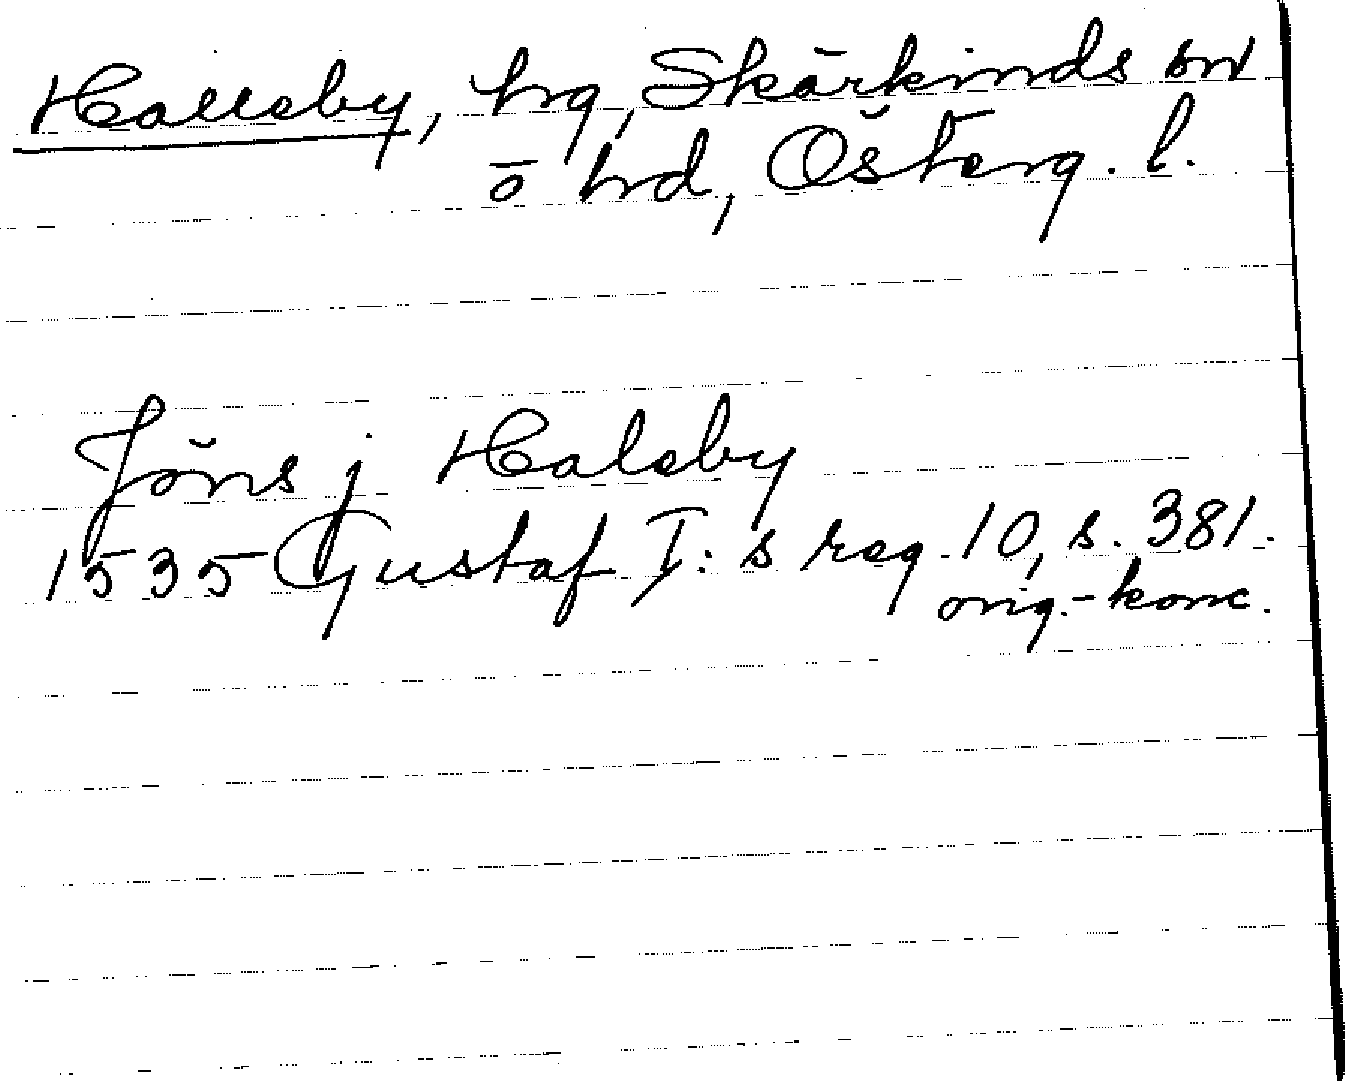 Hallsby, hg, Skärkinds sn
o hrd, Österg. l.
Jöns j Halsby
1535 Gustaf I:s reg. 10, s. 381.
orig.-konc.